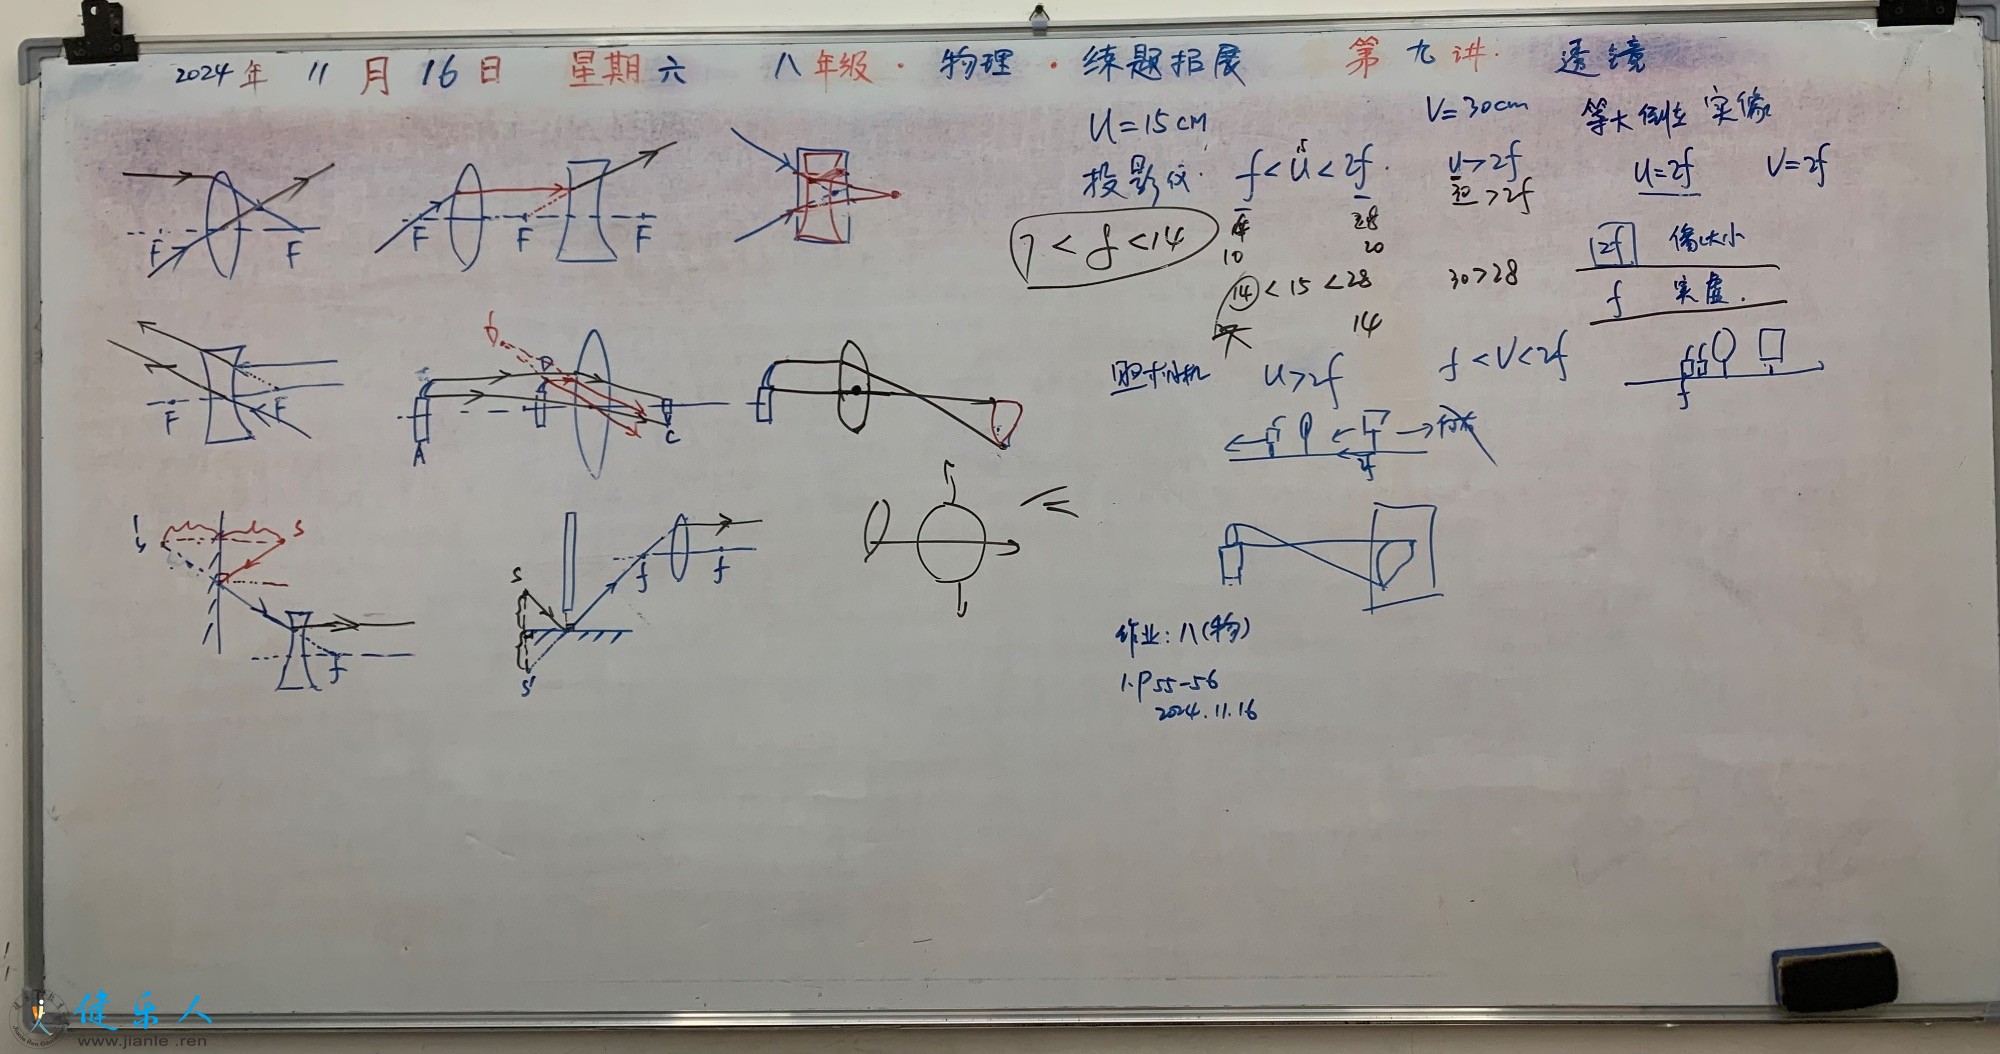 2024年 11月16日 星期六 八年级·物理·练题拓展 第九讲: 透镜
U=15cm V=30cm 等大倒立实像
投影仪: f<u<2f. u>2f U=2f V=2f
15
30>2f
7<f<14
14 28
10 20
2f 像大小
14<15<28 30>28
f 实虚.
14
照相机 U>2f f<V<2f
f
2f
F F
F F F
F F
A D C
S
f
S
S'
f f
作业: 八(物)
1.P55-56
2024.11.16
健乐人
www.jianle.ren